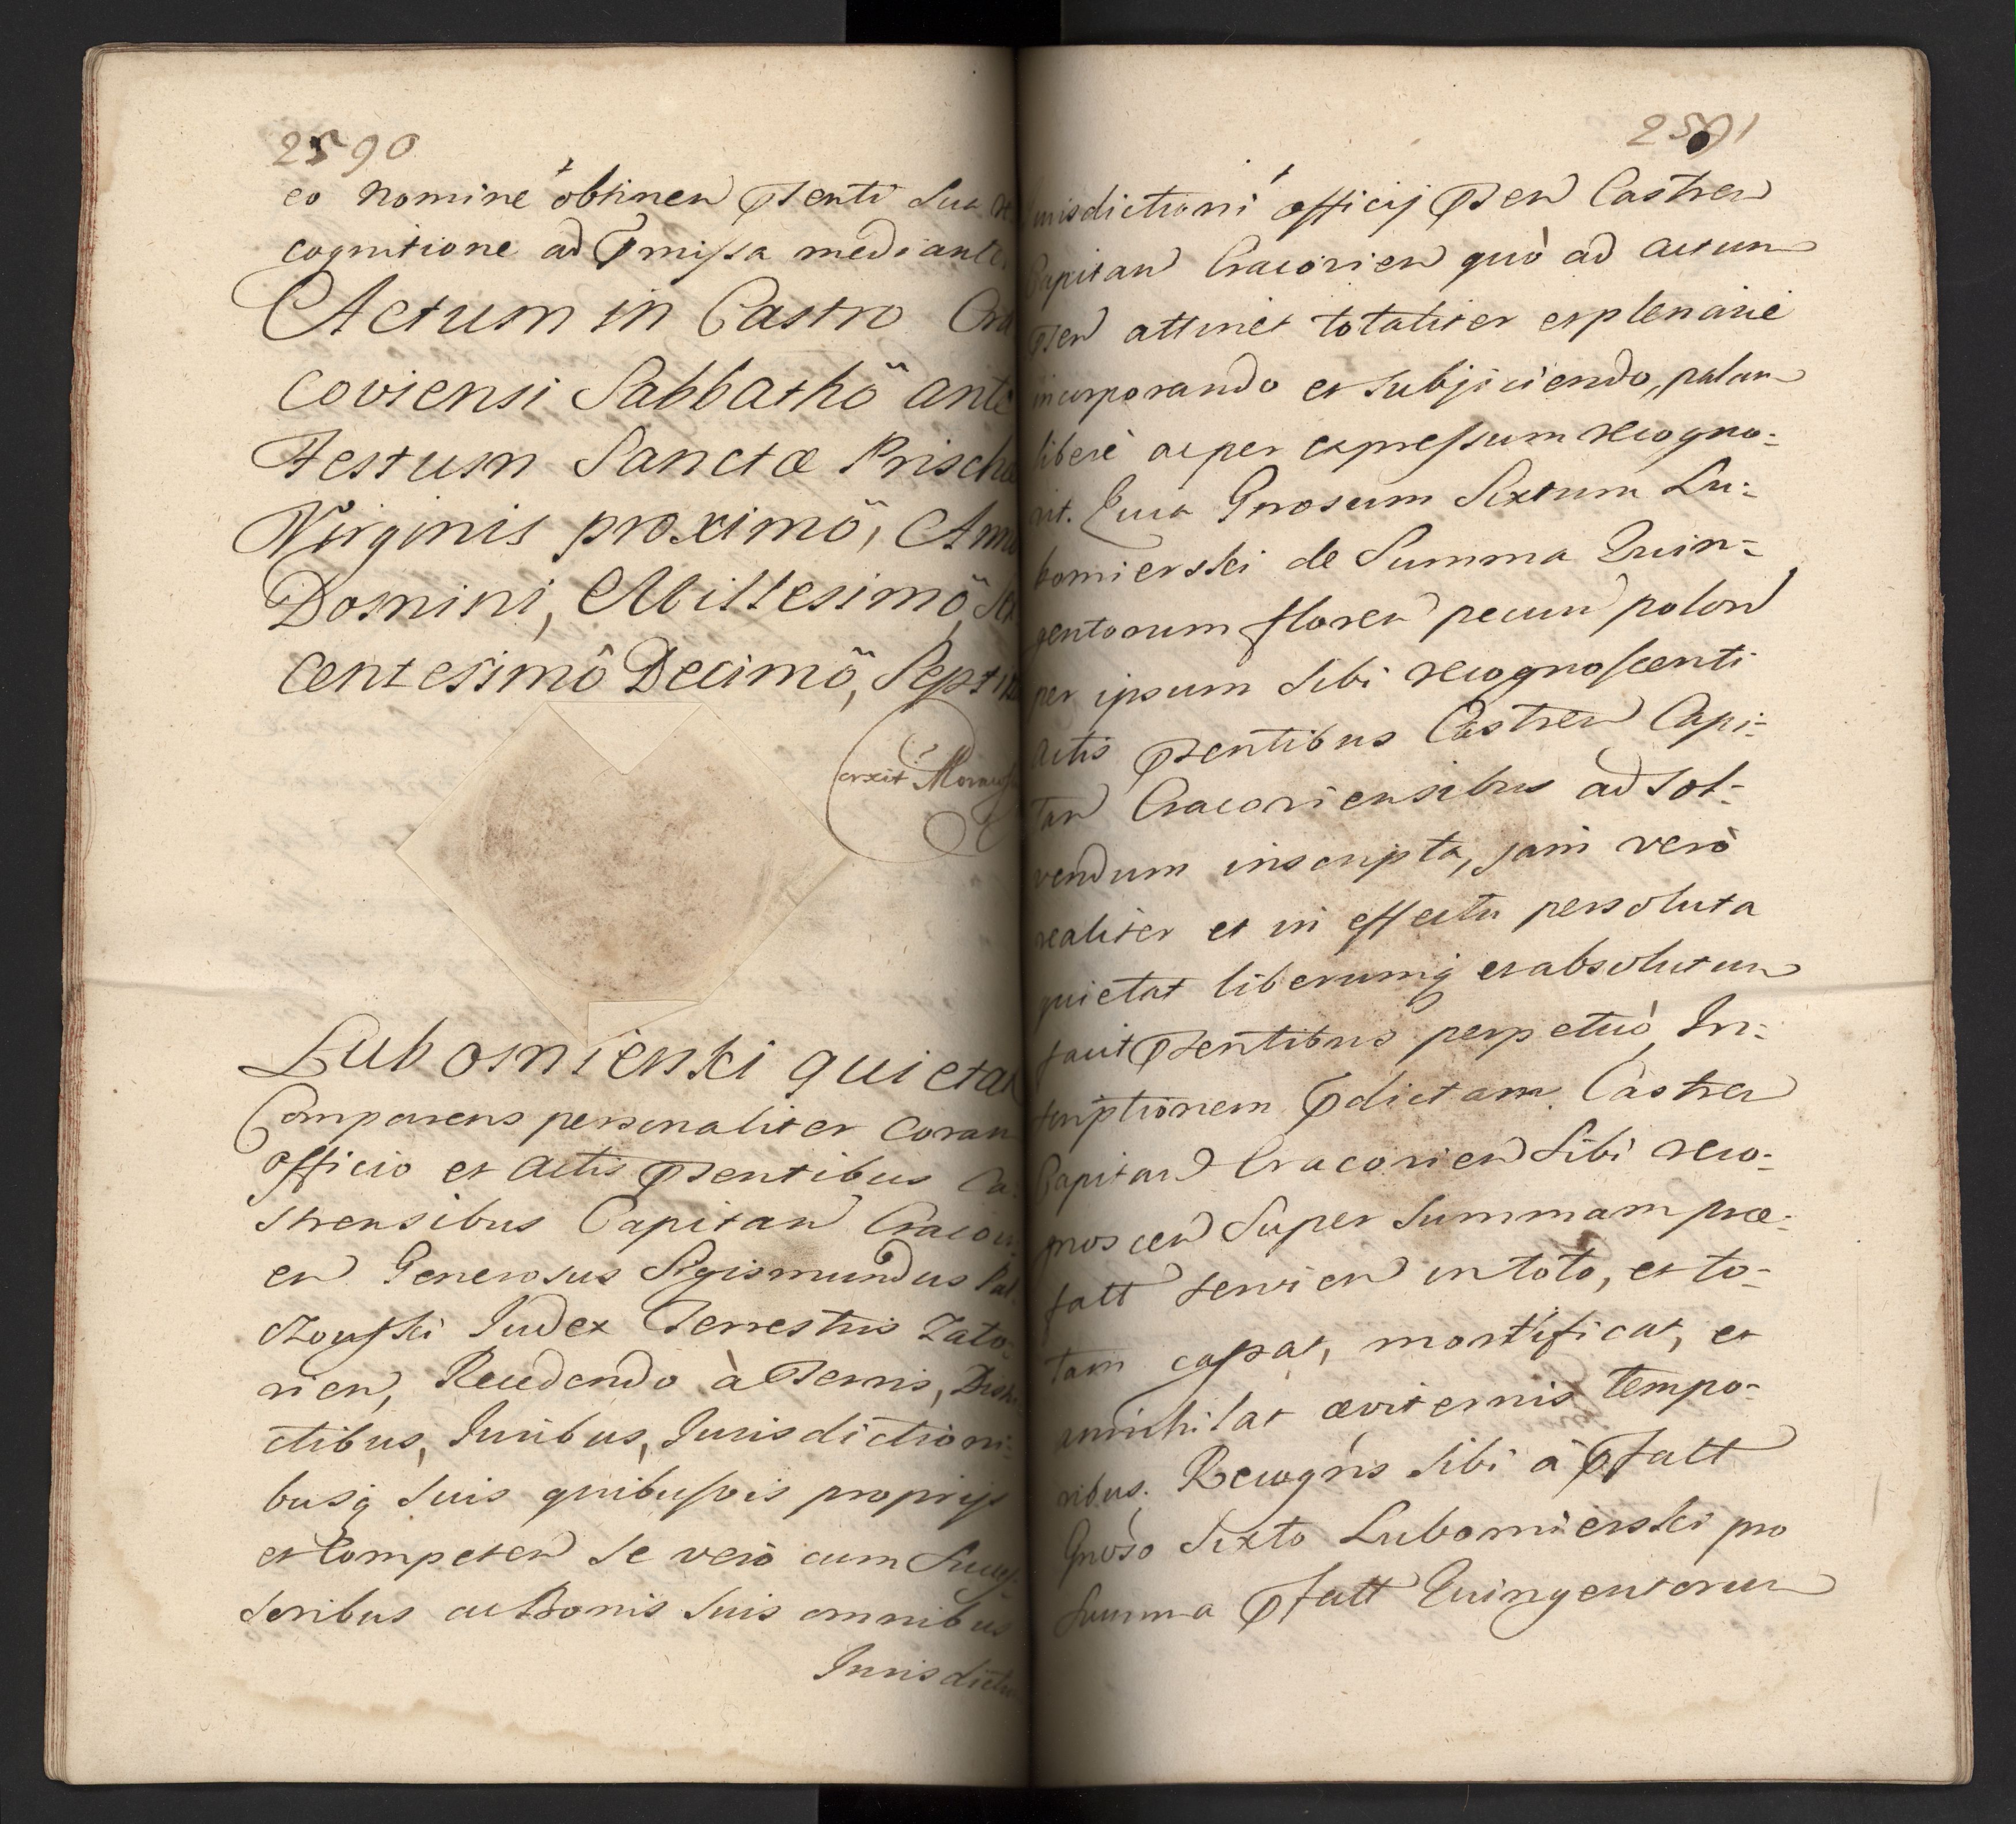 2590
eo nomine obtinen pñsenti sua re
cognitione ad pmissa mediante
Actum in Castro Cra
coviensi Sabbathö ante
Festum Sanctæ Prischæ
Virginis proximö, Anno
Domini, Millesimö, Sex
centesimô Decimö, Septi
corxit
Lubomierski quietat
Comparens personaliter coram
officio et Actis pñsentibus Ca:
strensibus Capitan Cracovi:
en Generosus Sigismundus Pal:
czowski Judex Terrestris Zato:
rien, Recedendo à Terris, Distri
ctibus, Juribus, Jurisdictioni:
busq suis quibusvis proprijs
et Competen se verò cum Succes:
soribus ac Bonis suis omnibus
Jurisdictio
2591
Jurisdictioni officij pñsen Castren
Capitan Cracovien quò ad actum
pñsen attinet totaliter et plenarie
incorporando et subjiciendo, palam
liberè ac per expressum recogno:
vit. Quia Gnosum Sixtum Lu:
bomierski de Summa Quin:
gentorum floren pecun polon
per ipsum sibi recognoscenti
Actis pñsentibus Castren Capi:
tan Cracoviensibus ad sol:
vendum inscripta, jam verò
realiter et in effectu persoluta
quietat liberumq et absolutum
facit pñsentibus perpetuò, In:
scriptionem pdictam Castren
Capitan Cracovien sibi reco:
gnoscen Super Summam præ:
fatt servien in toto, et to:
tam cassat, mortificat, et
annihilat æviternis tempo:
ribus. Recogñs sibi à pfatt
Gnoso Sixto Lubomierski pro
Summa pfatt Quingentorum